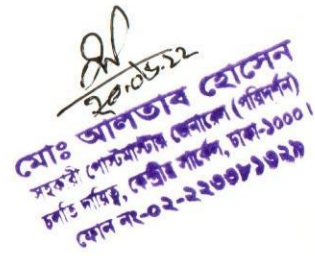 ২০.০৬.২২
মোঃ আলতাব হোসেন
সহকারী পোস্টমাস্টার জেনারেল (পরিদর্শন)
চলতি দায়িত্ব, কেন্দ্রীয় সার্কেল, ঢাকা-১০০০।
ফোন নং-০২-২২৩৩৮১৬২৯